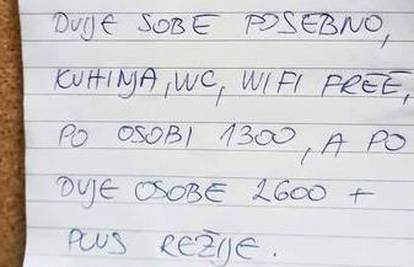 DVIJE SOBE POSEBNO,
KUHINJA, WC, WIFI FREE,
PO OSOBI 1300, A PO
DVIJE OSOBE 2600 +
PLUS REŽIJE.